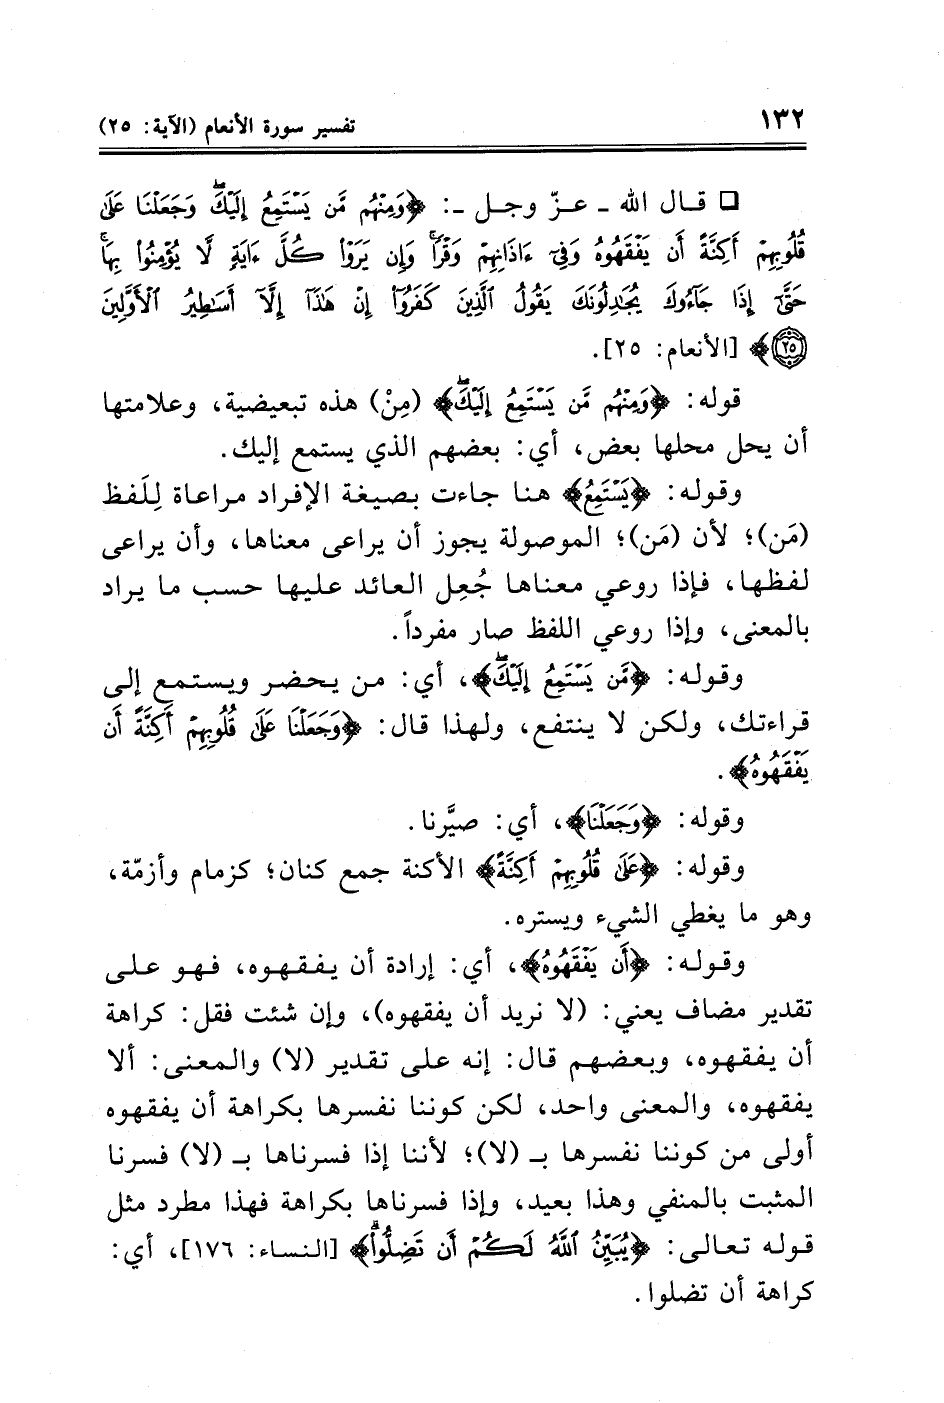 ١٣٢
تفسير سورة الأنعام (الآية: ٢٥)
❏ قال الله ـ عزّ وجل ـ: ﴿وَمِنْهُم مَّن يَسْتَمِعُ إِلَيْكَ ۖ وَجَعَلْنَا عَلَىٰ
قُلُوبِهِمْ أَكِنَّةً أَن يَفْقَهُوهُ وَفِىٓ ءَاذَانِهِمْ وَقْرًا ۚ وَإِن يَرَوْا۟ كُلَّ ءَايَةٍ لَّا يُؤْمِنُوا۟ بِهَا ۚ
حَتَّىٰٓ إِذَا جَآءُوكَ يُجَٰدِلُونَكَ يَقُولُ ٱلَّذِينَ كَفَرُوٓا۟ إِنْ هَٰذَآ إِلَّآ أَسَٰطِيرُ ٱلْأَوَّلِينَ
٢٥﴾ [الأنعام: ٢٥].
قوله: ﴿وَمِنْهُم مَّن يَسْتَمِعُ إِلَيْكَ ۖ﴾ (مِنْ) هذه تبعيضية، وعلامتها
أن يحل محلها بعض، أي: بعضهم الذي يستمع إليك.
وقوله: ﴿يَسْتَمِعُ﴾ هنا جاءت بصيغة الإفراد مراعاة لِلَفظ
(مَن)؛ لأن (مَن)؛ الموصولة يجوز أن يراعى معناها، وأن يراعى
لفظها، فإذا روعي معناها جُعِل العائد عليها حسب ما يراد
بالمعنى، وإذا روعي اللفظ صار مفرداً.
وقوله: ﴿مَّن يَسْتَمِعُ إِلَيْكَ ۖ﴾، أي: من يحضر ويستمع إلى
قراءتك، ولكن لا ينتفع، ولهذا قال: ﴿وَجَعَلْنَا عَلَىٰ قُلُوبِهِمْ أَكِنَّةً أَن
يَفْقَهُوهُ﴾.
وقوله: ﴿وَجَعَلْنَا﴾، أي: صيَّرنا.
وقوله: ﴿عَلَىٰ قُلُوبِهِمْ أَكِنَّةً﴾ الأكنة جمع كنان؛ كزمام وأزمّة،
وهو ما يغطي الشيء ويستره.
وقوله: ﴿أَن يَفْقَهُوهُ﴾، أي: إرادة أن يفقهوه، فهو على
تقدير مضاف يعني: (لا نريد أن يفقهوه)، وإن شئت فقل: كراهة
أن يفقهوه، وبعضهم قال: إنه على تقدير (لا) والمعنى: ألا
يفقهوه، والمعنى واحد، لكن كوننا نفسرها بكراهة أن يفقهوه
أولى من كوننا نفسرها بـ (لا)؛ لأننا إذا فسرناها بـ (لا) فسرنا
المثبت بالمنفي وهذا بعيد، وإذا فسرناها بكراهة فهذا مطرد مثل
قوله تعالى: ﴿يُبَيِّنُ ٱللَّهُ لَكُمْ أَن تَضِلُّوا۟ ۗ﴾ [النساء: ١٧٦]، أي:
كراهة أن تضلوا.